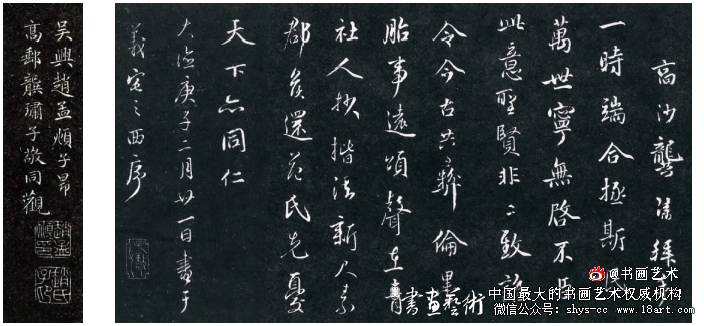 高沙龔
一時端合拯斯
萬世寧無啓不臣
此意聖賢非二致
令今古共彝倫墨
胎事遠頌聲在青
社人抄揩法新人
郡矦還范氏先憂
天下亦同仁
大德庚子二月廿一日書于
義宅之西序
吳興趙孟頫子昂
高郵龔璛子敬同觀
@书画艺术
書畫藝術
中国最大的书画艺术权威机构
微信公众号：shys-cc www.18art.com